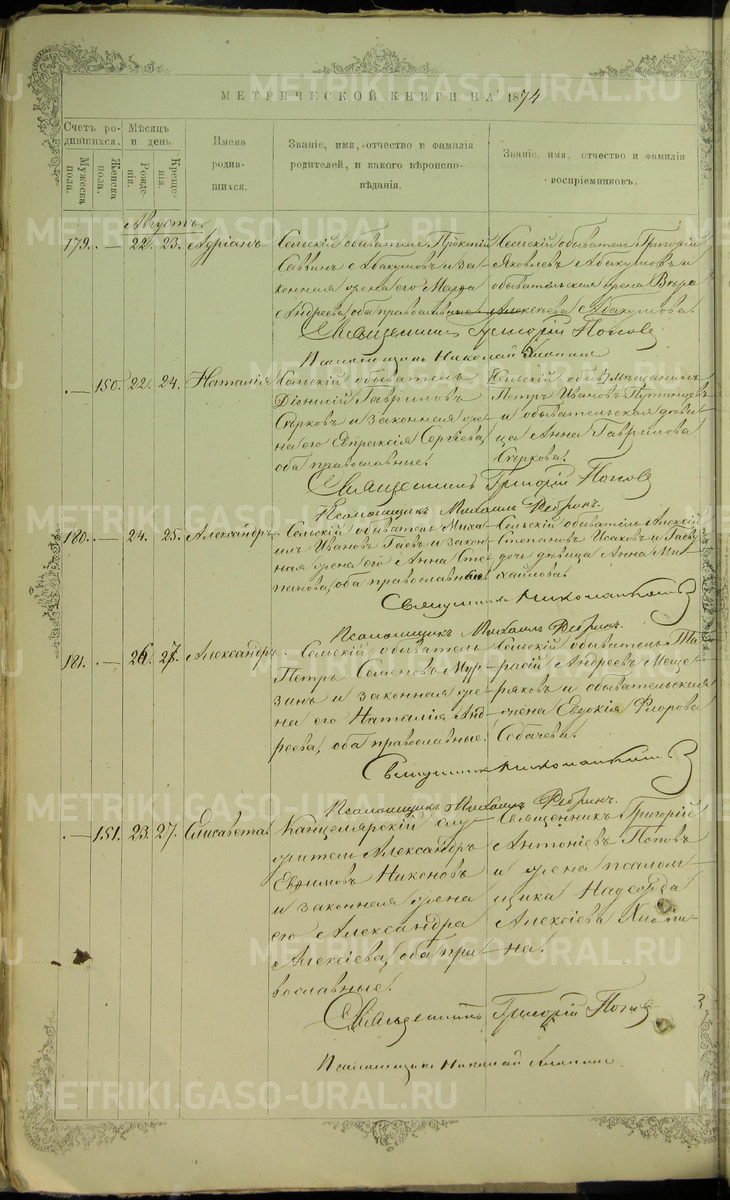 METRIKI.GASO-URAL.RU
МЕТРИЧЕСКОЙ КНИГИ НА 1874
Счетъ родившихся.
Мужеска пола.
Женска пола.
Мѣсяцъ и день
Рожденія.
Крещенія.
Имена родившихся.
Званіе, имя, отчество и фамилія родителей, и какого вѣроисповѣданія.
Званіе, имя, отчество и фамилія воспріемниковъ.
Августъ.
179. — 22. 23. Адріанъ
Сельскій обыватель Прокопій
Саввинъ Абакумовъ и за-
конная жена его Марѳа
Андреева, оба православные
Сельскій обыватель Григорій
Яковлевъ Абакумовъ и
обывательская жена Вѣра
Алексѣева Абакумова.
Священникъ Григорій Поповъ
Псаломщикъ Николай
— 150. 22. 24. Наталія
Сельскій обыватель
Діонисій Гавриловъ
Сѣрковъ и законная же-
на его Евпраксія Сергѣева,
оба православные.
Сельскій обыв. мѣщанинъ
Петръ Ивановъ
и обывательская дѣви-
ца Анна Гаврилова
Сѣркова.
Священникъ Григорій Поповъ
Псаломщикъ Михаилъ Ребринъ.
180. — 24. 25. Александръ.
Сельскій обыватель Миха-
илъ Ивановъ Гаевъ и закон-
ная жена его Анна Сте-
панова, оба православные.
Сельскій обыватель Алексѣй
Степановъ Исаковъ и Гаеву
дочь дѣвица Анна Ми-
хайлова.
Священникъ
Псаломщикъ Михаилъ Ребринъ.
181. — 26. 27. Александръ.
Сельскій обыватель
Петръ Семеновъ Мур-
зинъ и законная же-
на его Наталія Анд-
реева, оба православные.
Сельскій обыватель Та-
расій Андреевъ Меще-
ряковъ и обывательская
жена Евдокія Флорова
Собачева.
Священникъ
Псаломщикъ Михаилъ Ребринъ.
— 151. 23. 27. Елисавета.
Канцелярскій слу-
житель Александръ
Евфимовъ Никоновъ
и законная жена
его Александра
Алексіева, оба пра-
вославные.
Священникъ Григорій
Антоніевъ Поповъ
и жена псалом-
щика Надежда
Алексіева
Священникъ Григорій Поповъ
Псаломщикъ Николай